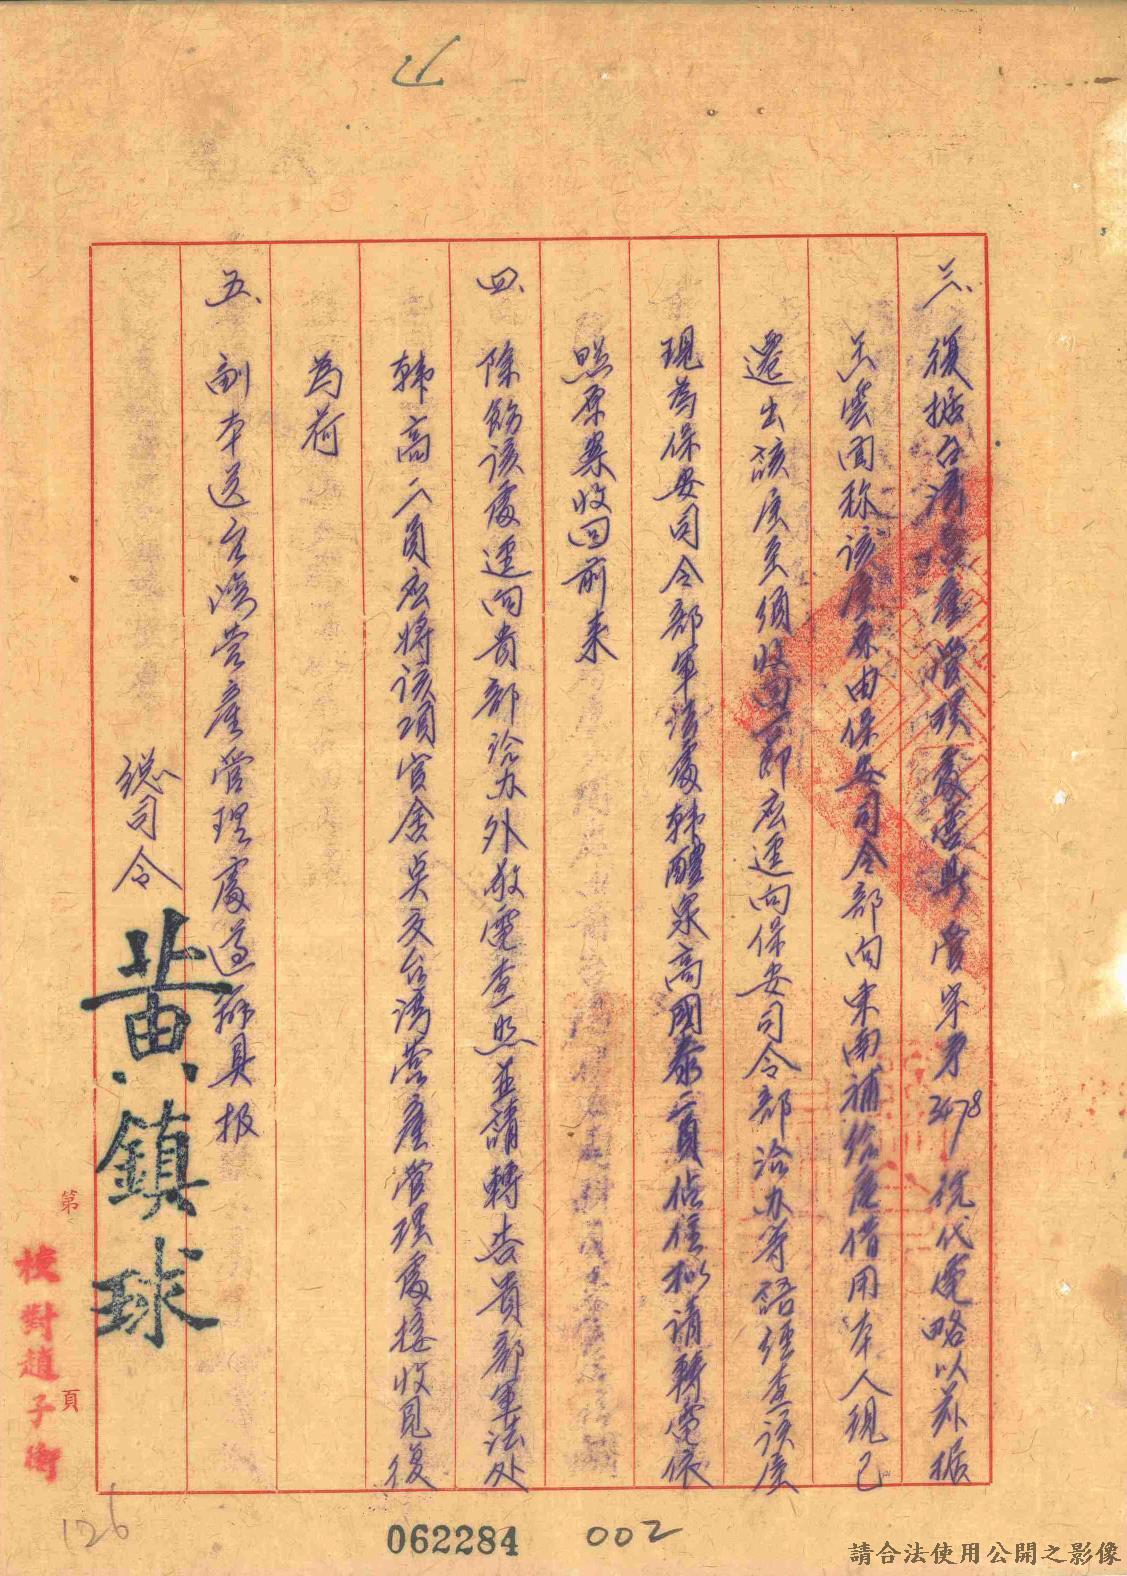 三、復據台灣營產管理處營字第3478號代電略以茲據
雲閣稱該屋原由保安司令部向東南補給區借用本人現已
遷出該屋至須收回一節應逕向保安司令部洽办等語經查該屋
現為保安司令部軍法處韓醴泉高國泰二員佔住擬請轉電依
照原案收回前來
四、除飭該處逕向貴部洽办外敬電查照並請轉告貴部軍法处
韓高二員應將該項官舍點交台湾營產管理處接收見復
為荷
五、副本送台湾营產管理處遵辦具报
總司令 黃鎮球
第 頁
校對趙子衡
126
062284 002
請合法使用公開之影像